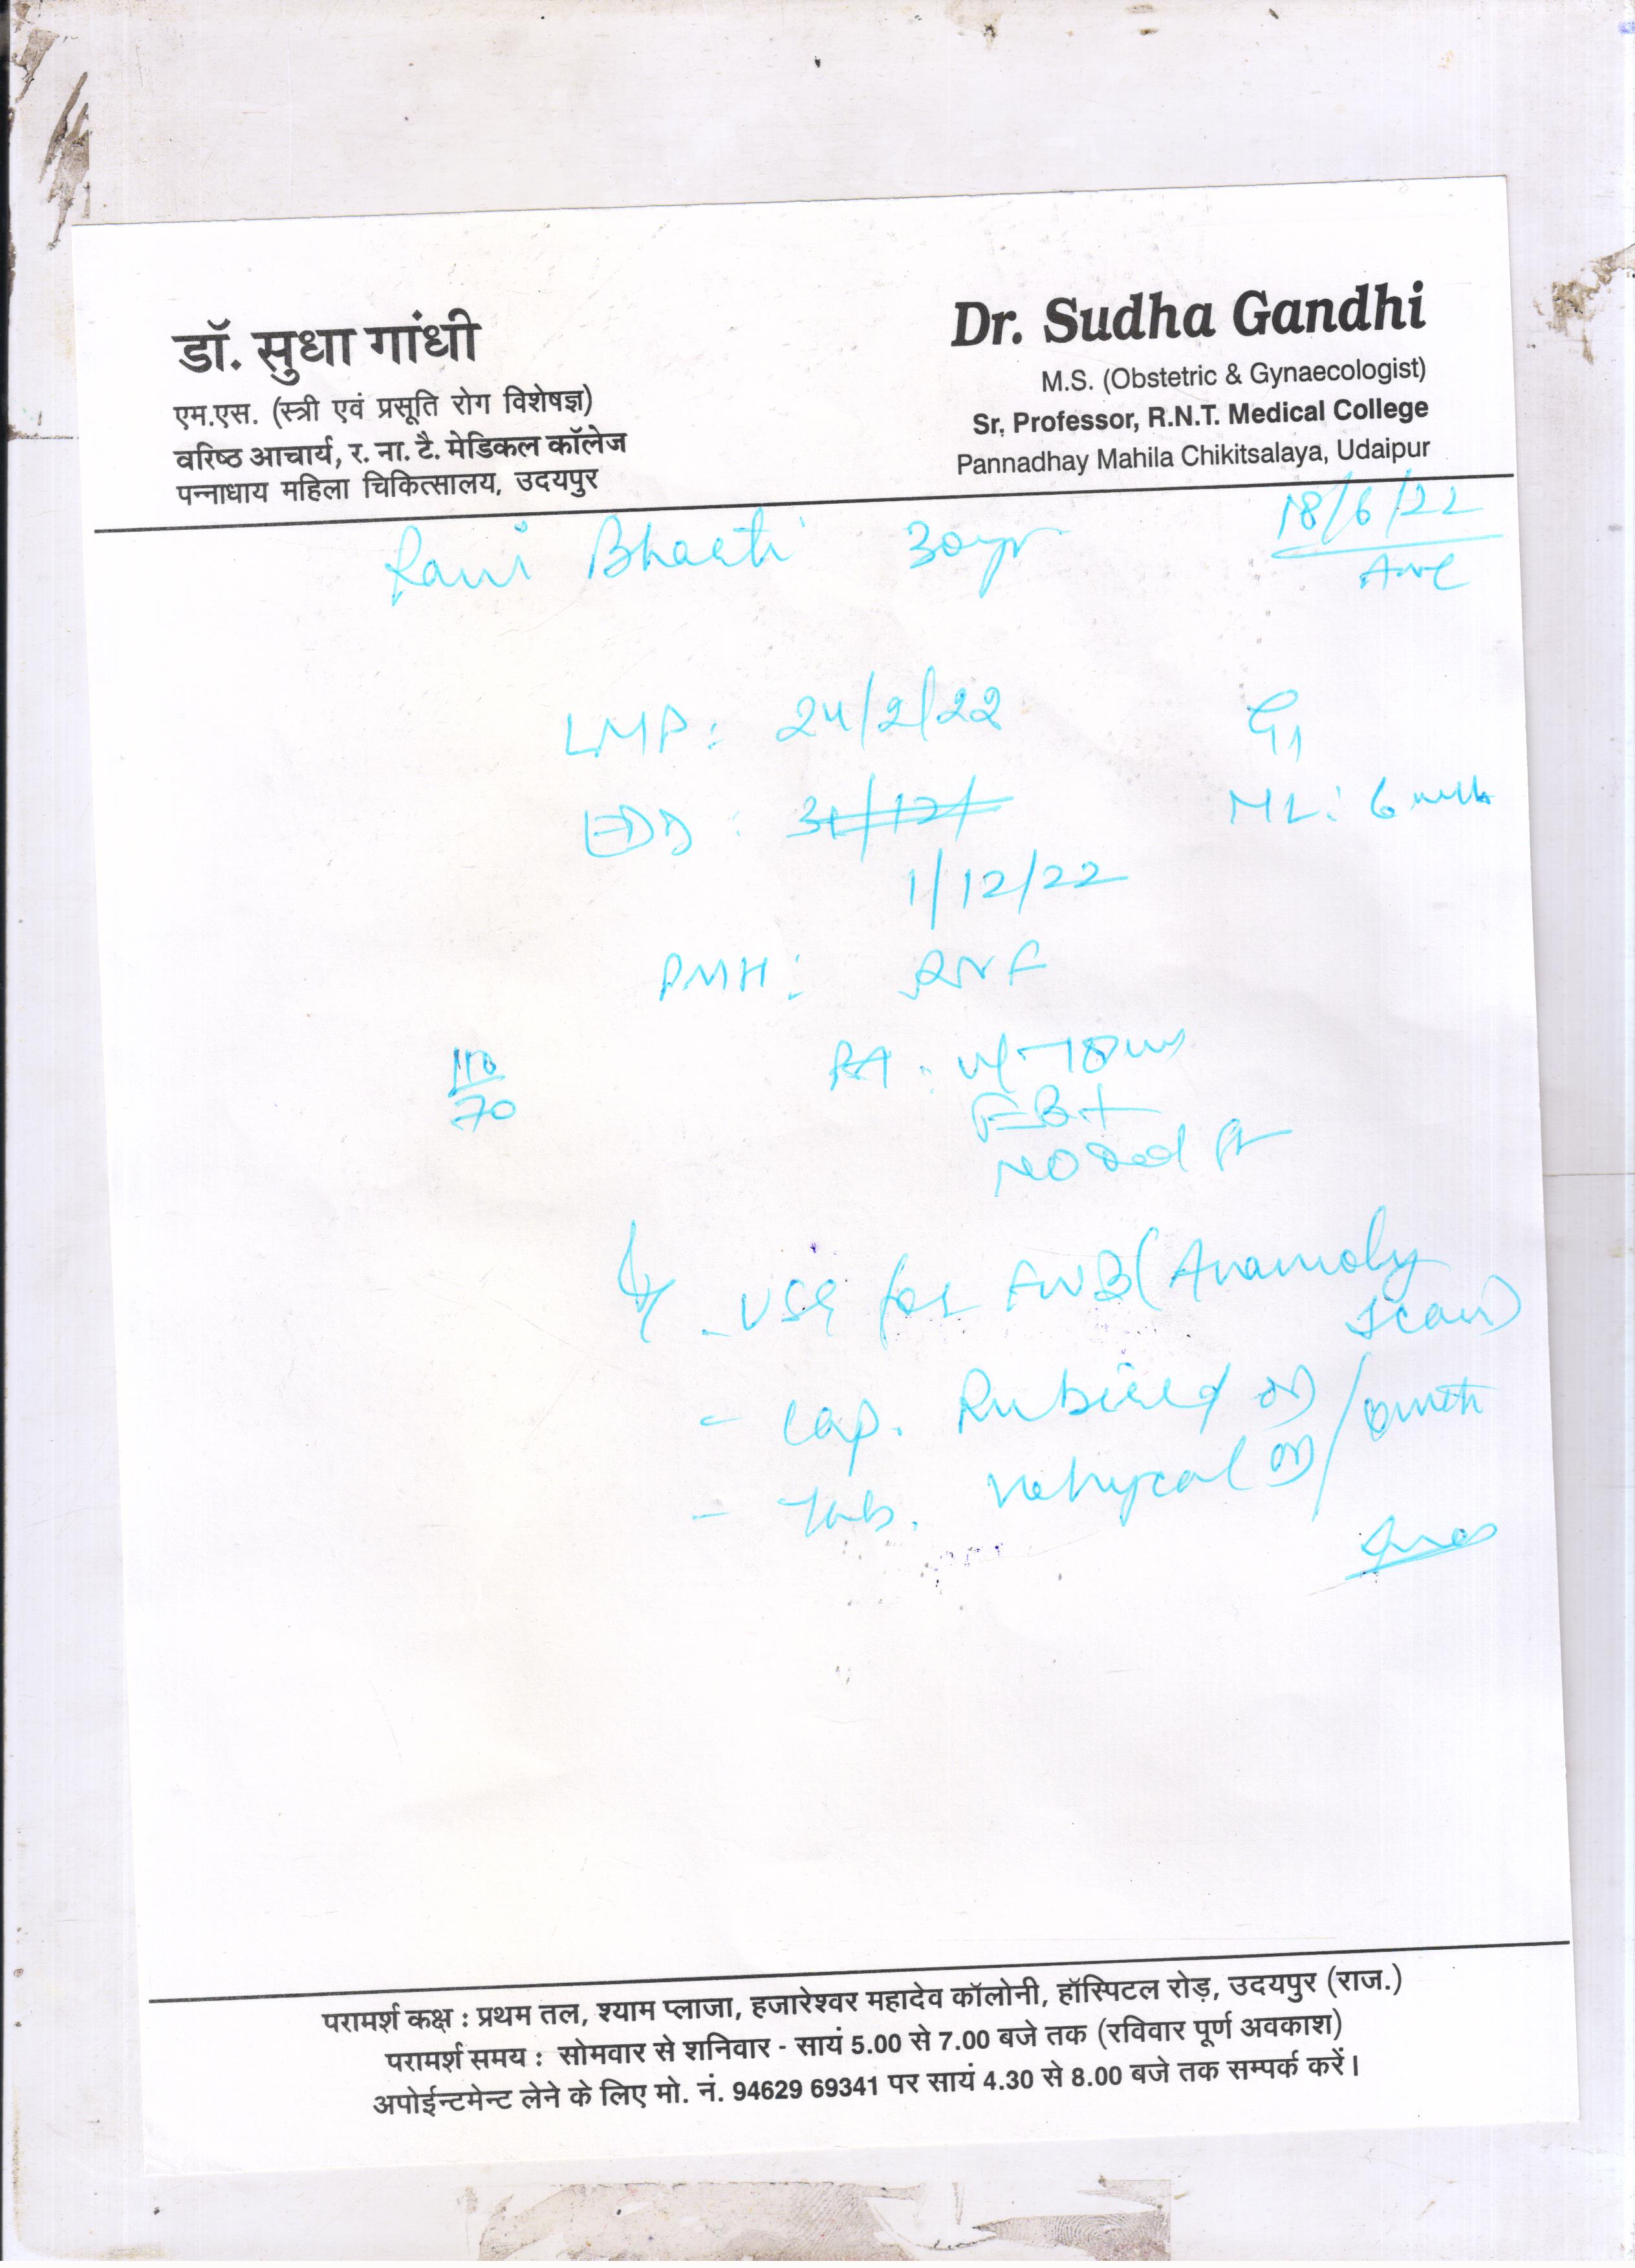 डॉ. सुधा गांधी
एम.एस. (स्त्री एवं प्रसूति रोग विशेषज्ञ)
वरिष्ठ आचार्य, र. ना. टै. मेडिकल कॉलेज
पन्नाधाय महिला चिकित्सालय, उदयपुर
Dr. Sudha Gandhi
M.S. (Obstetric & Gynaecologist)
Sr. Professor, R.N.T. Medical College
Pannadhay Mahila Chikitsalaya, Udaipur
18/6/22
ANC
Bharti 30yr
LMP: 24/2/22 G1
EDD: 31/12/ ML: 6
1/12/22
PMH:
110
70
PA:
FB+
NO
- USG for FWB (Anamoly
scan)
- Cap. OD /
- Tab. OD
परामर्श कक्ष : प्रथम तल, श्याम प्लाजा, हजारेश्वर महादेव कॉलोनी, हॉस्पिटल रोड़, उदयपुर (राज.)
परामर्श समय : सोमवार से शनिवार - सायं 5.00 से 7.00 बजे तक (रविवार पूर्ण अवकाश)
अपोईन्टमेन्ट लेने के लिए मो. नं. 94629 69341 पर सायं 4.30 से 8.00 बजे तक सम्पर्क करें।